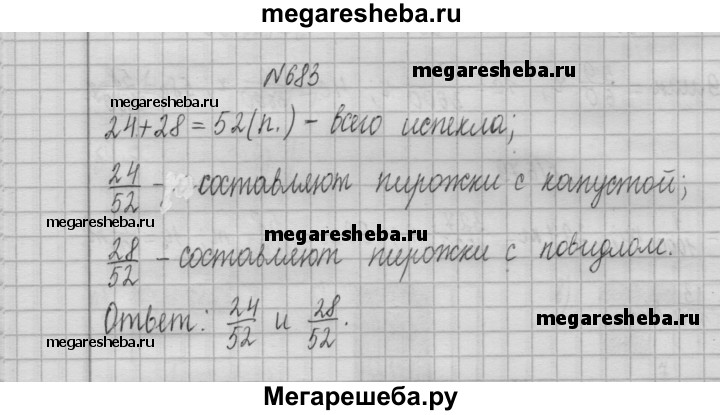 megaresheba.ru
N683
megaresheba.ru
megaresheba.ru
24+28=52(п.) - всего испекла;
24/52 - составляют пирожки с капустой;
megaresheba.ru
megaresheba.ru
28/52 - составляют пирожки с повидлом.
Ответ: 24/52 и 28/52.
megaresheba.ru
Мегарешеба.ру